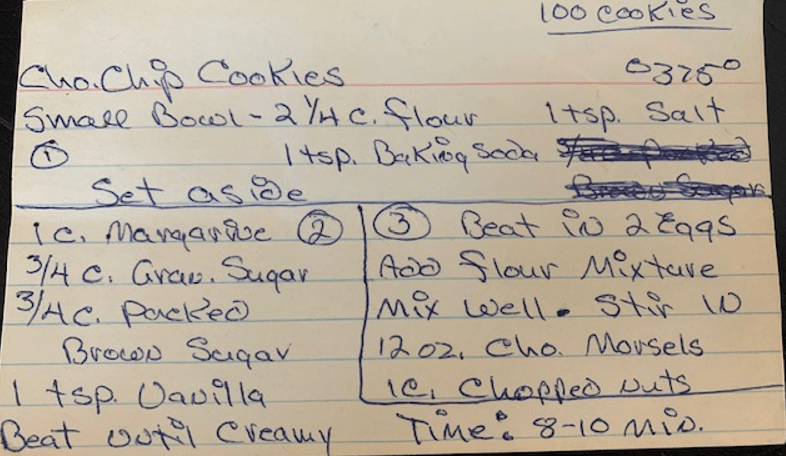 100 cookies
Cho. Chip Cookies 375°
Small Bowl - 2 1/4 c. flour 1 tsp. Salt
① 1 tsp. Baking Soda
Set aside
1 c. Margarine ②
3/4 c. Gran. Sugar
3/4 c. packed
Brown Sugar
1 tsp. Vanilla
Beat until Creamy
③ Beat in 2 Eggs
Add flour Mixture
Mix well. Stir in
12 oz. Cho. Morsels
1 c. Chopped nuts
Time: 8-10 min.